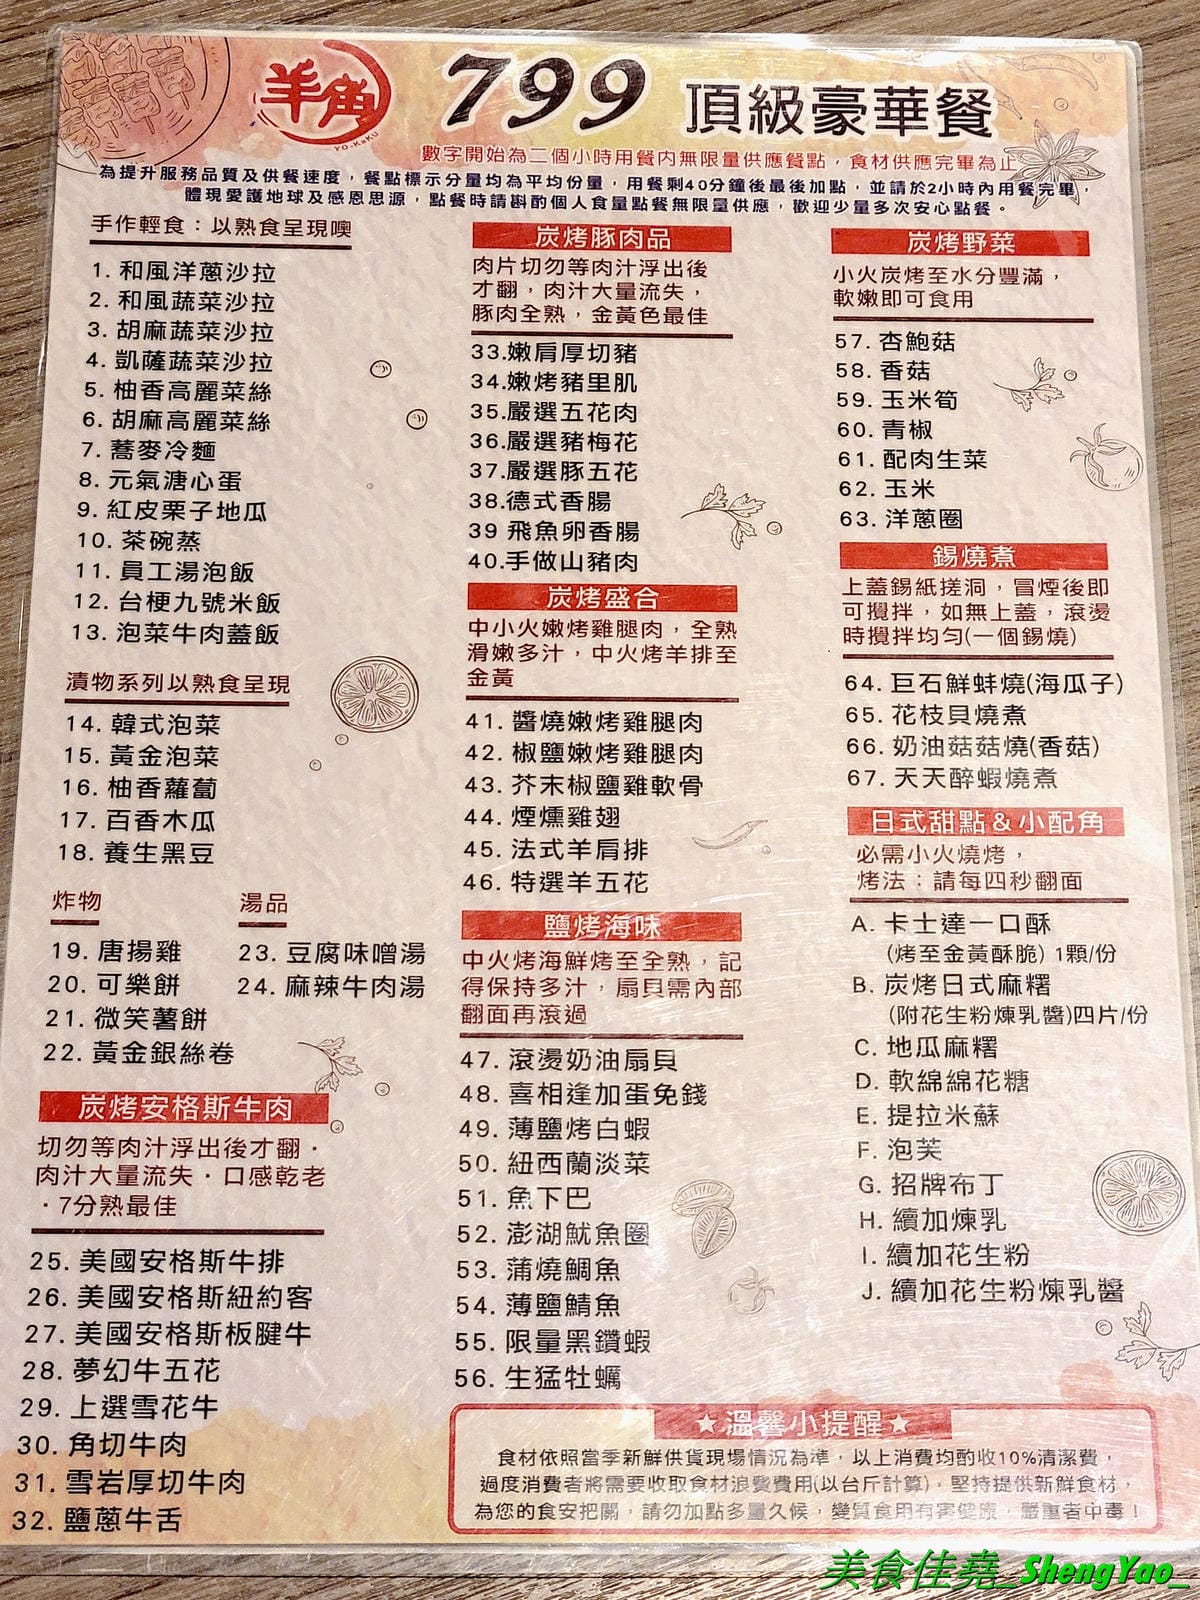 羊角
YO-KaKU
799 頂級豪華餐
數字開始為二個小時用餐内無限量供應餐點，食材供應完畢為止
為提升服務品質及供餐速度，餐點標示分量均為平均份量，用餐剩40分鐘後最後加點，並請於2小時內用餐完畢，
體現愛護地球及感恩思源，點餐時請斟酌個人食量點餐無限量供應，歡迎少量多次安心點餐。
手作輕食：以熟食呈現噢
1. 和風洋蔥沙拉
2. 和風蔬菜沙拉
3. 胡麻蔬菜沙拉
4. 凱薩蔬菜沙拉
5. 柚香高麗菜絲
6. 胡麻高麗菜絲
7. 蕎麥冷麵
8. 元氣溏心蛋
9. 紅皮栗子地瓜
10. 茶碗蒸
11. 員工湯泡飯
12. 台梗九號米飯
13. 泡菜牛肉蓋飯
漬物系列以熟食呈現
14. 韓式泡菜
15. 黃金泡菜
16. 柚香蘿蔔
17. 百香木瓜
18. 養生黑豆
炸物
19. 唐揚雞
20. 可樂餅
21. 微笑薯餅
22. 黃金銀絲卷
湯品
23. 豆腐味噌湯
24. 麻辣牛肉湯
炭烤安格斯牛肉
切勿等肉汁浮出後才翻．
肉汁大量流失．口感乾老
．7分熟最佳
25. 美國安格斯牛排
26. 美國安格斯紐約客
27. 美國安格斯板腱牛
28. 夢幻牛五花
29. 上選雪花牛
30. 角切牛肉
31. 雪岩厚切牛肉
32. 鹽蔥牛舌
炭烤豚肉品
肉片切勿等肉汁浮出後
才翻，肉汁大量流失，
豚肉全熟，金黃色最佳
33.嫩肩厚切豬
34.嫩烤豬里肌
35.嚴選五花肉
36.嚴選豬梅花
37.嚴選豚五花
38.德式香腸
39 飛魚卵香腸
40.手做山豬肉
炭烤盛合
中小火嫩烤雞腿肉，全熟
滑嫩多汁，中火烤羊排至
金黃
41. 醬燒嫩烤雞腿肉
42. 椒鹽嫩烤雞腿肉
43. 芥末椒鹽雞軟骨
44. 煙燻雞翅
45. 法式羊肩排
46. 特選羊五花
鹽烤海味
中火烤海鮮烤至全熟，記
得保持多汁，扇貝需內部
翻面再滾過
47. 滾燙奶油扇貝
48. 喜相逢加蛋免錢
49. 薄鹽烤白蝦
50. 紐西蘭淡菜
51. 魚下巴
52. 澎湖魷魚圈
53. 蒲燒鯛魚
54. 薄鹽鯖魚
55. 限量黑鑽蝦
56. 生猛牡蠣
炭烤野菜
小火炭烤至水分豐滿，
軟嫩即可食用
57. 杏鮑菇
58. 香菇
59. 玉米筍
60. 青椒
61. 配肉生菜
62. 玉米
63. 洋蔥圈
錫燒煮
上蓋錫紙搓洞，冒煙後即
可攪拌，如無上蓋，滾燙
時攪拌均勻(一個錫燒)
64. 巨石鮮蚌燒(海瓜子)
65. 花枝貝燒煮
66. 奶油菇菇燒(香菇)
67. 天天醉蝦燒煮
日式甜點＆小配角
必需小火燒烤，
烤法：請每四秒翻面
A. 卡士達一口酥
(烤至金黃酥脆) 1顆/份
B. 炭烤日式麻糬
(附花生粉煉乳醬)四片/份
C. 地瓜麻糬
D. 軟綿綿花糖
E. 提拉米蘇
F. 泡芙
G. 招牌布丁
H. 續加煉乳
I. 續加花生粉
J. 續加花生粉煉乳醬
★溫馨小提醒★
食材依照當季新鮮供貨現場情況為準，以上消費均酌收10%清潔費，
過度消費者將需要收取食材浪費費用(以台斤計算)，堅持提供新鮮食材，
為您的食安把關，請勿加點多量久候，變質食用有害健康，嚴重者中毒！
美食佳堯_ShengYao_